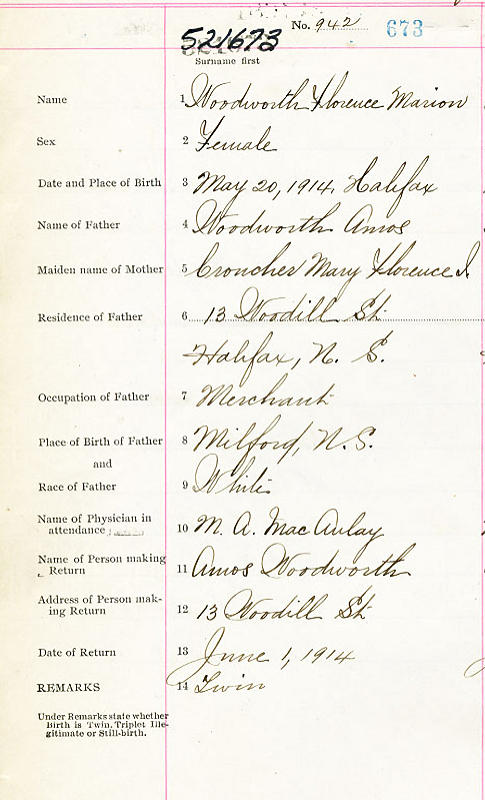 No. 942 673
521673
Surname first
Name 1 Woodworth Florence Marion
Sex 2 Female
Date and Place of Birth 3 May 20, 1914, Halifax
Name of Father 4 Woodworth Amos
Maiden name of Mother 5 Croucher Mary Florence I.
Residence of Father 6 13 Woodill St.
Halifax, N. S.
Occupation of Father 7 Merchant
Place of Birth of Father 8 Milford, N.S.
and
Race of Father 9 White
Name of Physician in
attendance 10 M. A. MacAulay
Name of Person making
Return 11 Amos Woodworth
Address of Person mak-
ing Return 12 13 Woodill St.
Date of Return 13 June 1, 1914
REMARKS 14 Twin
Under Remarks state whether
Birth is Twin, Triplet Ille-
gitimate or Still-birth.